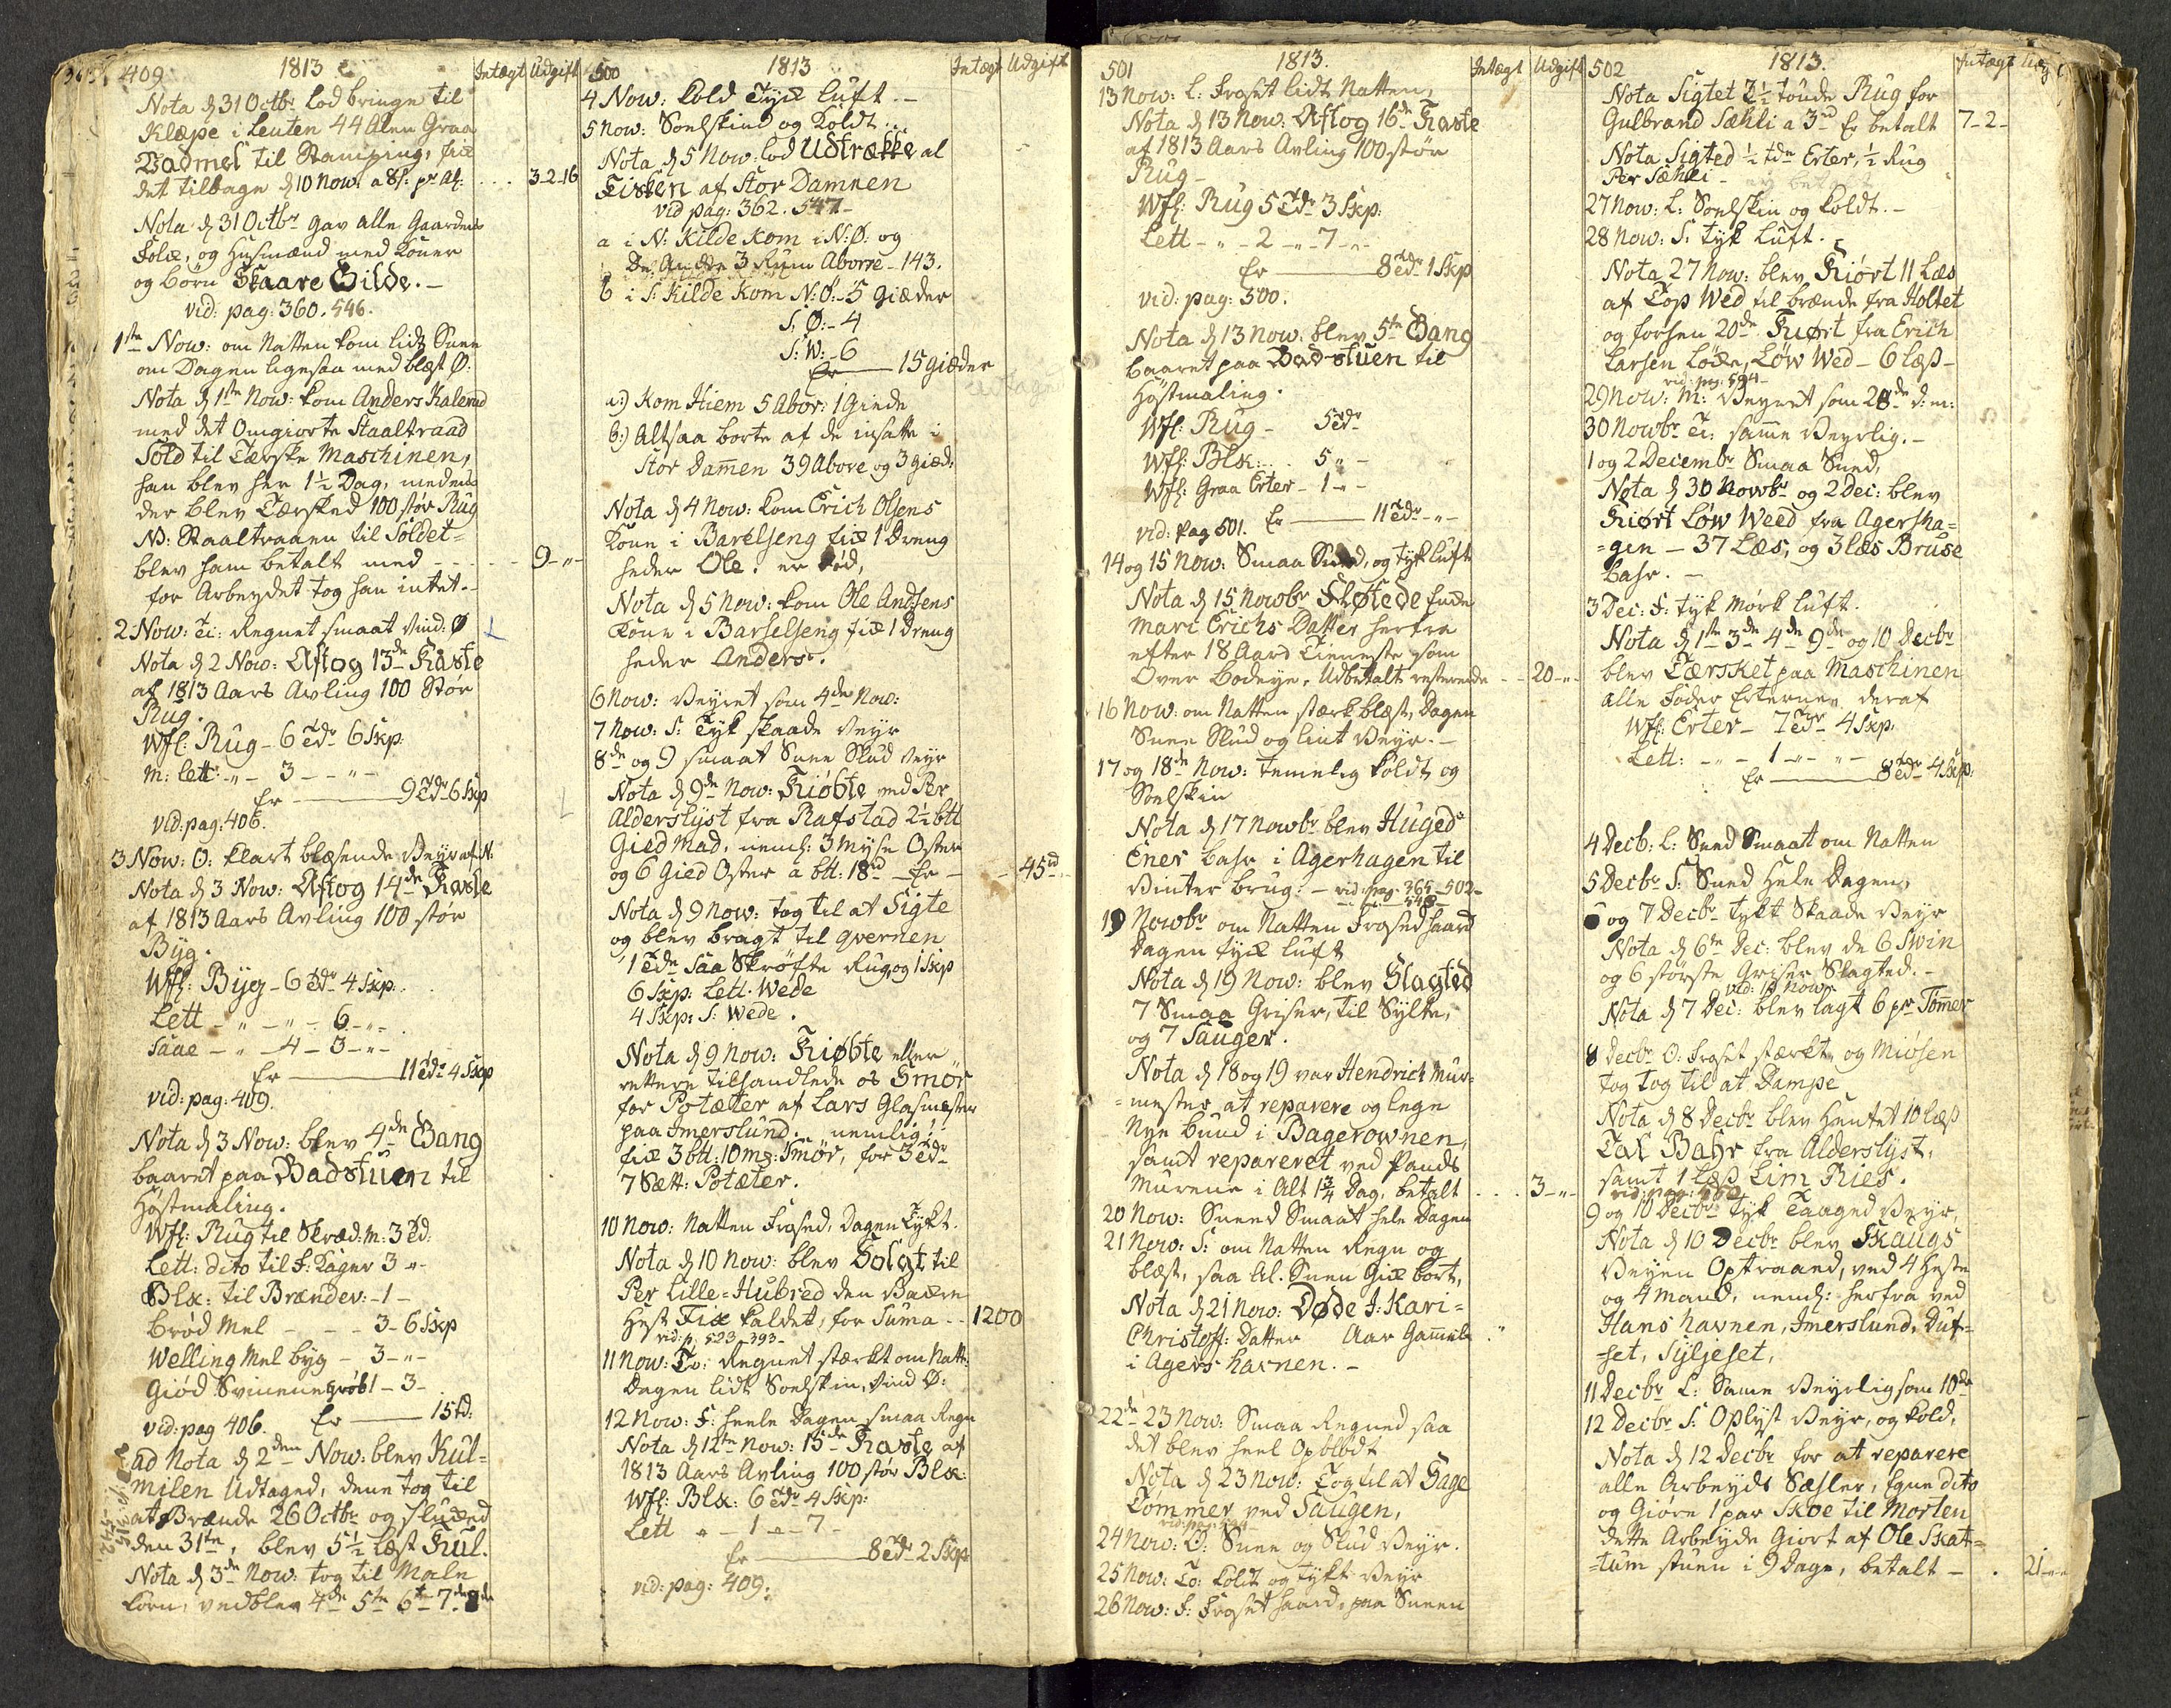 409 1813 Intægt Udgift
Nota d 31 Octbr lod bringe til
Klæpe i Leuten 44 Alen Graa
Vadmel til Stamping, fiæ
det tilbage d 10 Now: a 8s: pr Al: 3-2-16
Nota d 31 Octbr gav alle Gaardens
Folk, og Husmænd med Koner
og börn Skaare Gilde.-
vid: pag: 360. 546.
1ste Now: om Natten kom lidt Snee
om Dagen ligesaa med blæst Ø:
Nota d 1ste Now: kom Anders Kalerud
med det Omgiorte Staaltraad
Sold til Tærske Maschinen,
han blev her 1½ Dag, medens
der blev Tærsked 100 stör Rug
NB: Staaltraaen til Soldet=
blev ham betalt med 9-"-
for Arbeydet tog han intet.-
2 Now: Ti: Regnet smaat Vind: Ø
Nota d 2 Now: Aftog 13de Kaste
af 1813 Aars Avling 100 Stör
Rug.
Wfl: Rug - 6 Tdr 6 Skp:
m: lett: -"- 3 - -"-
Er 9 Tdr 6 Skp
vid: pag: 406.
3 Now: O: klart blæsende Veyr af N:
Nota d 3 Now: Aftog 14de Kaste
af 1813 Aars Avling 100 stör
Byg.
Wfl: Byg - 6 Tdr 4 Skp:
Lett - " - " - 6 -"-
Saae - " - 4 - 3 -"-
Er 11 Tdr 4 Skp
vid: pag: 409.
Nota d 3 Now: blev 4de Gang
baaret paa Badstuen til
Höstmaling.
Wfl: Rug til Skræd: m: 3 Td:
Lett: dito til F: Kager 3 "-
Blk: til Brændev: - 1 -
Bröd Mel - - - 3 - 6 Skp
Welling Mel byg - 3 -"-
Giöd Svinene gröb 1 - 3 -
vid: pag 406. Er 15 td:
ad Nota d 2den Now: blev Kul=
milen Udtaged, dene tog til
at Brænde 26 Octbr og sluded
den 31te, blev 5½ Læst Kul.
Nota d 3de Now: tog til Male
Korn, vedblev 4de 5te 6te 7de 8de
500 1813 Intægt Udgift
4 Now: kold Tyk luft.-
5 Now: Soelskind og Koldt.
Nota d 5 Now: lod Udtrække al
Fisken af Stor Damnen
vid pag: 362. 547-
a i N: Kilde kom i N: Ø: og
De Andre 3 Rum Aborre - 143.
b i S: Kilde kom N: Ø: - 5 giæder
S: Ø: - 4
S: W: - 6
Er 15 giæder
a:) kom Hiem 5 Abor: 1 Giede
b:) Altsaa borte af de insatte i
Stor Damen 39 Abore og 3 giæd:
Nota d 4 Now: kom Erich Olsens
Kone i Barselseng fik 1 Dreng
heder Ole. er död,
Nota d 5 Now: kom Ole Andsens
Kone i Barselseng fik 1 Dreng
heder Anders.
6 Now: Veyret som 4de Now:
7 Now: S: Tyk skaade Veyr
8de og 9 smaat Snee Slud Veyr
Nota d 9de Now: Kiøbte ved Per
Alderslyst fra Rafstad 2½ btt
Gied Mad, neml: 3 Myse Oster
og 6 Gied Oster a btt: 18rd Er 45rd
Nota d 9 Now: tog til at Sigte
og blev bragt til qvernen
1 Tdr Saa Skröfte Rug og 1 Skp
6 Skp: Lett. Wede
4 Skp: S: Wede.
Nota d 9 Now: Kiøbte eller
rettere tilhandlede os Smör
for Potæter af Lars Glasmester
paa Imerslund. nemlig:
fik 3 btt: 10 mz: Smör, for 3 Tdr
7 Sætt: Potæter.
10 Now: Natten Frosed, Dagen Tykt.
Nota d 10 Now: blev Solgt til
Per Lille-Hubred den Brune
Hest Fix kaldet, for Suma 1200
vid: p: 523-393-
11 Now: To: Regnet stærkt om Natt:
Dagen lidt Soelskin, Vind Ø:
12 Now: F: heele Dagen smaa Regn
Nota d 12te Now: 15de Kaste af
1813 Aars Avling 100 stör Blk:
Wfl: Blk: 6 Tdr 4 Skp:
Lett " - 1 -"- 7 -
Er 8 Tdr 2 Skp
vid: pag: 409.
501 1813. Intægt Udgift
13 Now: L: Froset lidt Natten,
Nota d 13 Now: Aftog 16de Kaste
af 1813 Aars Avling 100 stör
Rug -
Wfl: Rug 5 Tdr 3 Skp:
Lett - " - 2 -"- 7 -"-
Er 8 Tdr 1 Skp
vid: pag: 500.
Nota d 13 Now: blev 5te Gang
baaret paa Badstuen til
Höstmaling.
Wfl: Rug - 5 Tdr
Wfl: Blk: . . 5 " -
Wfl: Graa Erter - 1 -"-
vid: pag 501. Er 11 Tdr -"-
14 og 15 Now: Smaa Sneed, og tyk luft
Nota d 15 Nowbr Fløtede
Mari Erichs Datter herfra
efter 18 Aars Tieneste som
Over Bodeye, Udbetalt resterende 20-"-
16 Now: om Natten stærk blæst, Dagen
Snee Slud og lint Veyr.-
17 og 18de Now: temelig koldt og
Soelskin
Nota d 17 Nowbr blev Huged
Ener bahr i Agerhagen til
Vinter brug: - vid: pag: 365-502-
548-
19 Nowbr om Natten Frosed haard
Dagen tyk luft
Nota d 19 Now: blev Slagted
7 Smaa Griser, til Sylte,
og 7 Sauger.
Nota d 18 og 19 var Hendrich Mur=
=mester at reparere og lege
Nye bund i Bagerownen,
samt repareret ved Pands
Murene i Alt 1¾ Dag, betalt 3-"-
20 Now: Sneed Smaat hele Dagen
21 Now: S: om Natten Regn og
blæst, saa al. Sneen Gik bort,
Nota d 21 Now: Døde J: Kari=
Christoff: Datter Aar Gammel
i Agers havnen.-
22de 23 Now: Smaa Regned saa
det blev heel Opblødt
Nota d 23 Now: Tog til at Sage
Tömmer ved Saugen,
24 Now: O: Snee og Slud Veyr.
25 Now: To: koldt og tykt Veyr
26 Now: F: Froset haard, paa Sneen
502 1813. Intægt
Nota Sigtet 3½ tönde Rug for
Gulbrand Sæhli a 3rd Er betalt 7-2-
Nota Sigted ½ tdr Erter, ½ Rug
Per Sæhli -
27 Now: L: Soelskin og koldt.-
28 Now: S. tyk luft.
Nota 27 Now: blev Kiørt 11 Læs
af Top Wed til brænde fra Holtet
og forhen 20de Kiørt fra Erich
Larsen Löke, Löw Wed - 6 læs -
vid: pag: 504-
29 Now: M: Veyret som 28de d: m:
30 Nowbr Ti: same Veyrlig.-
1 og 2 Decembr Smaa Sned,
Nota d 30 Nowbr og 2 Dec: blev
Kiørt Löw Weed fra Agersha=
=gen - 37 Læs, og 3 læs Bruse
bahr.-
3 Dec: F: tyk mörk luft.
Nota d 1ste 3de 4de 9de og 10 Decbr
blev Tærsket paa Maschinen
alle Foder Erterne, deraf
Wfl: Erter - 7 Tdr 4 Skp:
Lett: - " - 1 -"- "-
Er 8 Tdr 4 Skp:
4 Decb: L: Sned Smaat om Natten
5 Decbr S: Sned Hele Dagen,
6 og 7 Decbr tykt Skaade Veyr
Nota d 6te Dec: blev de 6 Swin
og 6 største Griser Slagted.-
vid: 19 Nowr
Nota d 7 Dec: blev lagt 6 pr Tömer
8 Decbr O: Froset stærkt, og Miösen
tog tog til at Dampe
Nota d 8 Decbr blev Hentet 10 læs
Tal Bahr fra Alderslyst,
samt 1 Læs Lim Ries.
9 og 10 Decbr: tyk Taaged Veyr,
Nota d 10 Decbr blev Skaugs
Veyen Optraand, ved 4 Heste
og 4 Mand, neml: herfra ved
Hans havnen, Imerslund, Duf=
=set, Syljeset,
11 Decbr L: Same Veyrlig som 10de
12 Decbr S: Oplyst Veyr, og kold,
Nota d 12 Decbr for at reparere
alle Arbeyds Sæhler, Egne dito
og Giöre 1 par Skoe til Morten
dette Arbeyde Giort af Ole Skat=
=tum stuen i 9 Dage, betalt - 21-"-